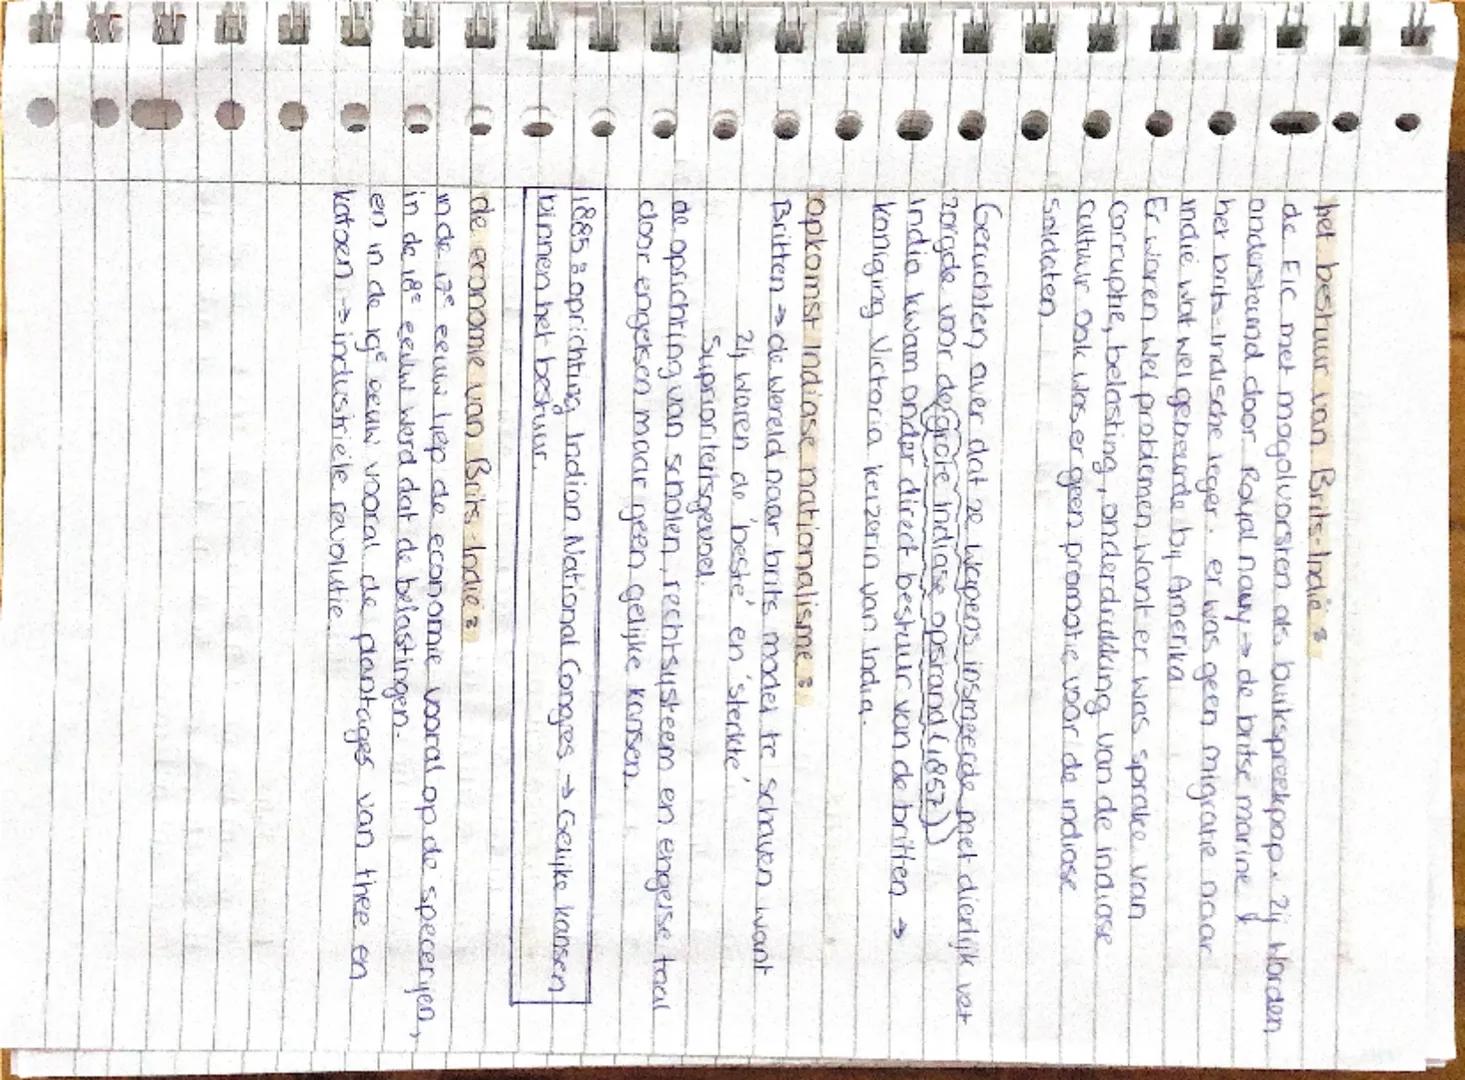 het bestuur van Brits-Indië :
de EIC met mogolvorsten als buikspreekpop. Zij worden
ondersteund door Royal navy → de britse marine &
het brits-indische leger. er was geen migratie naar
indië wat wel gebeurde bij Amerika
Er waren wel problemen want er was sprake van
corruptie, belasting, onderdrukking van de indiase
cultuur ook was er geen promotie voor de indiase
soldaten
Geruchten over dat ze wapens insmeerde met dierlijk vet
zorgde voor de grote indiase opstand (1857)
India kwam onder direct bestuur van de britten →
koniging Victoria keizerin van India.
opkomst indiase nationalisme :
Britten → de wereld naar brits model te schaven want
zij waren de 'beste' en 'sterkte'
Suprioriteitsgevoel.
de oprichting van scholen, rechtsysteem en engelse taal
door engelsen maar geen gelijke kansen.
1885 : oprichting Indian National Conges → Gelijke kansen
binnen het bestuur.
de economie van Brits-Indië :
in de 17e eeuw liep de economie vooral op de specerijen,
in de 18e eeuw werd dat de belastingen.
en in de 19e eeuw vooral de plantages van thee en
katoen → industriële revolutie.